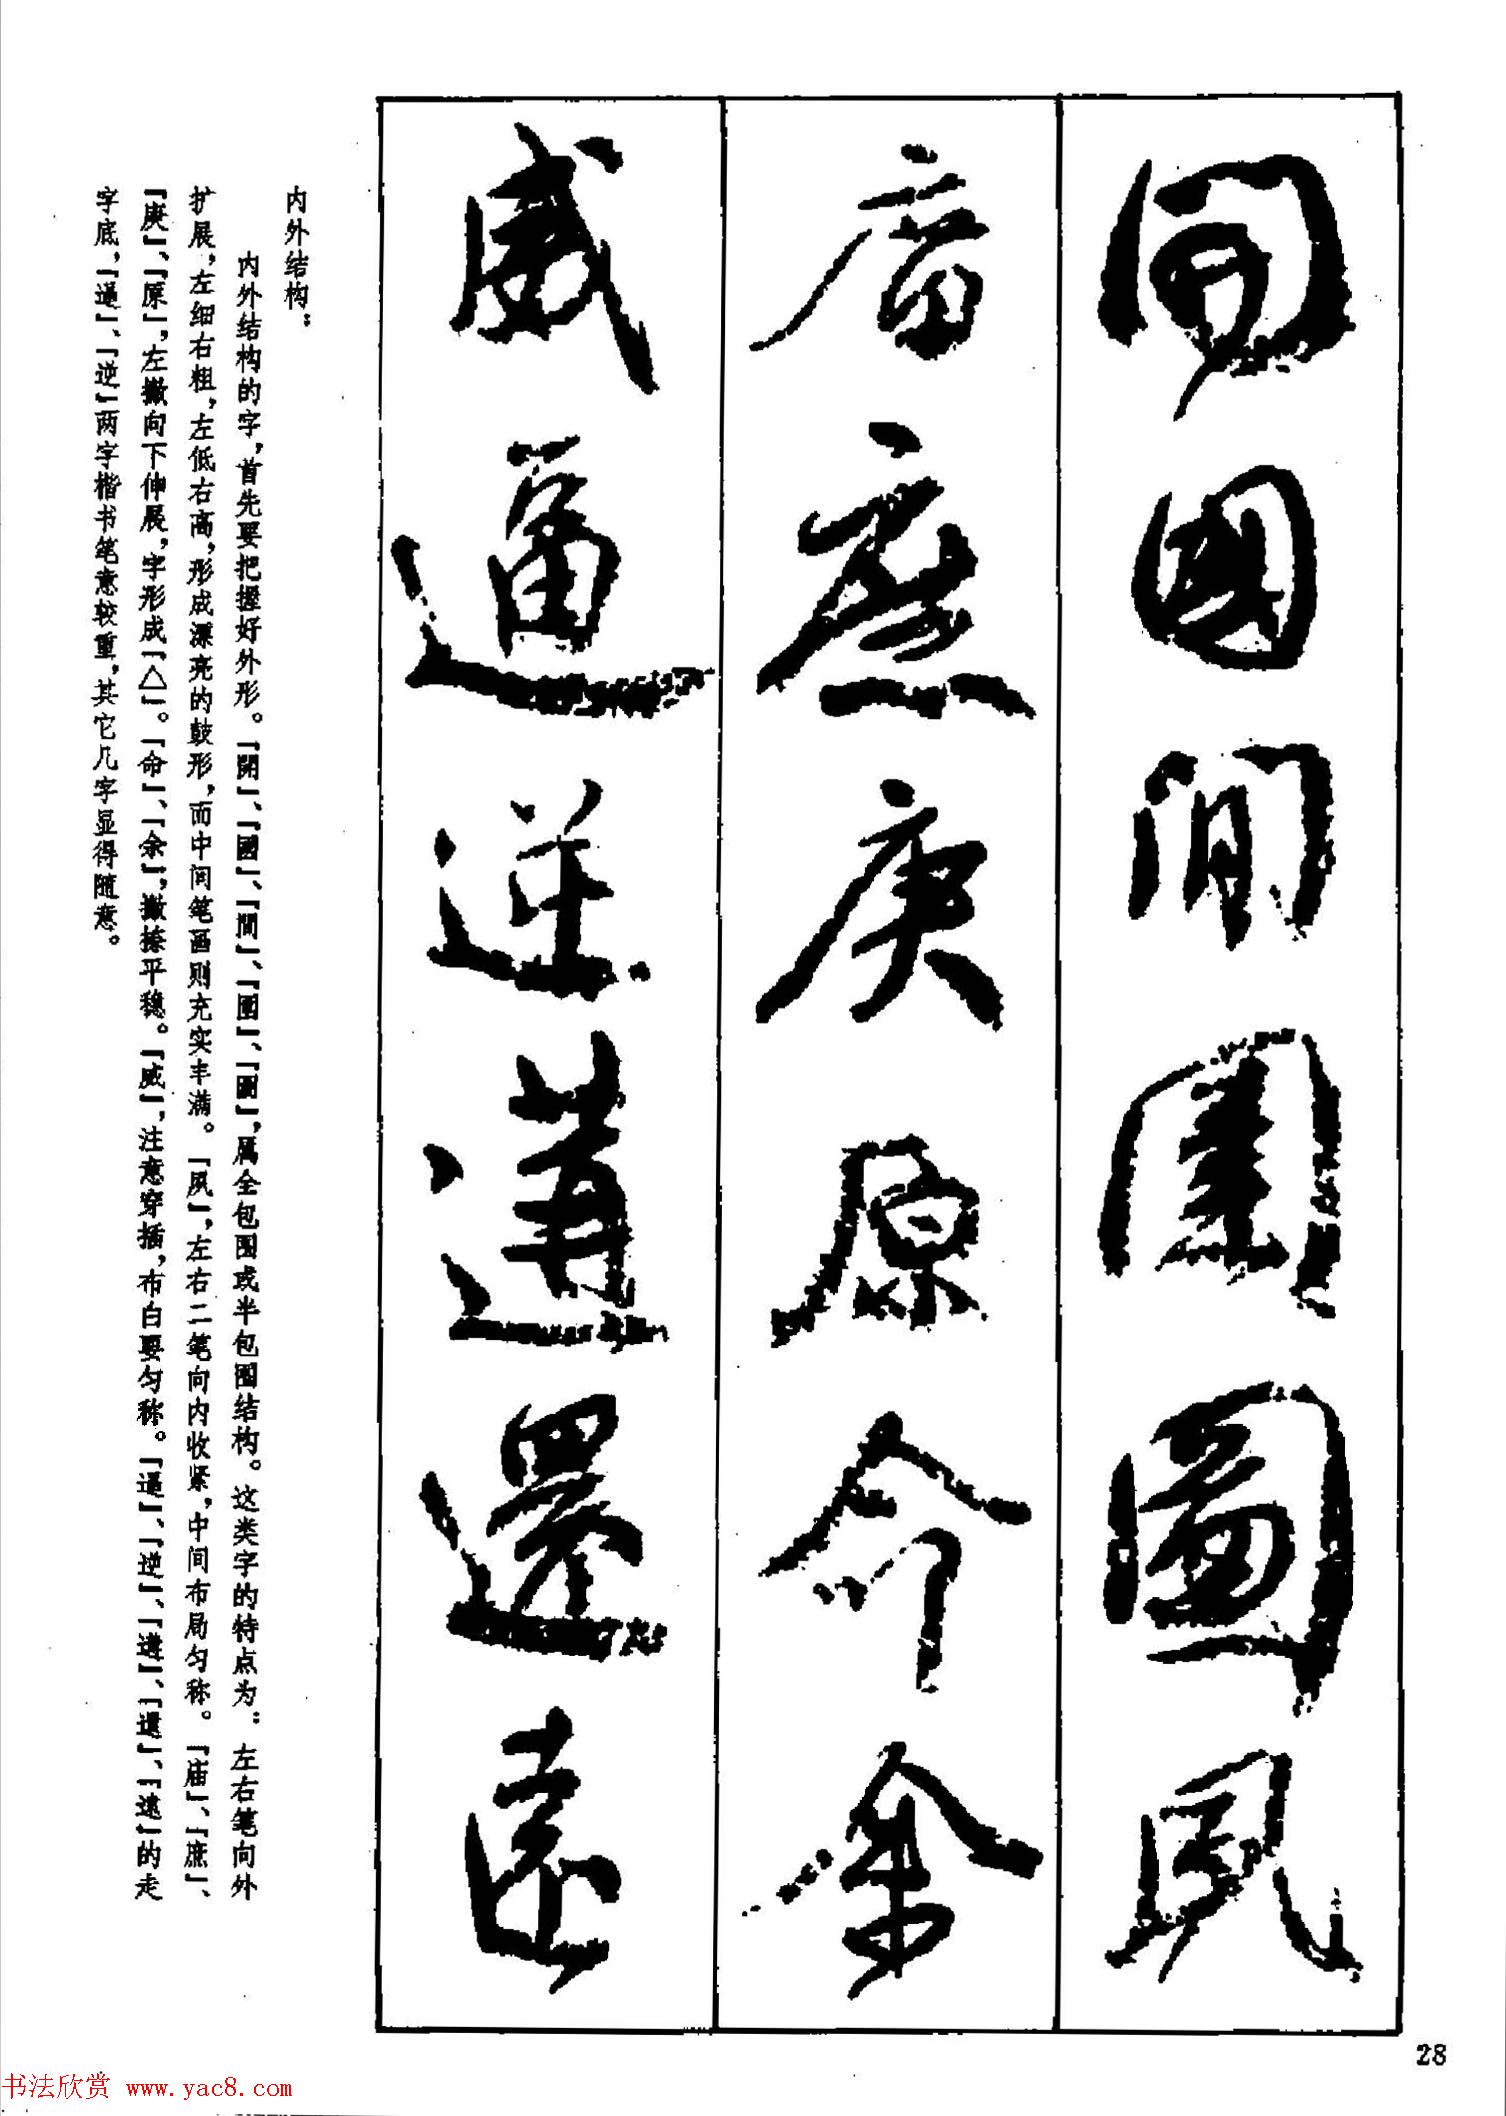 開國間團圖風
廟庶庚原命余
威逼逆遘還遠
内外结构：
内外结构的字，首先要把握好外形。「開」、「國」、「間」、「團」、「圖」，属全包围或半包围结构。这类字的特点为：左右笔向外
扩展，左细右粗，左低右高，形成漂亮的鼓形，而中间笔画则充实丰满。「风」，左右二笔向内收紧，中间布局匀称。「庙」、「庶」、
「庚」、「原」，左撇向下伸展，字形成「△」。「命」、「余」，撇捺平稳。「威」，注意穿插，布白要匀称。「逼」、「逆」、「遘」、「還」、「遠」的走
字底，「逼」、「逆」两字楷书笔意较重，其它几字显得随意。
28
书法欣赏 www.yac8.com